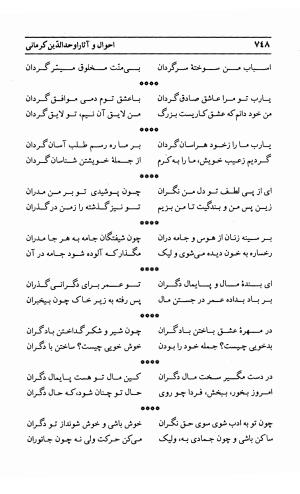 ۷۴۸ احوال و آثار اوحدالدّین کرمانی
اسباب من سوختهٔ سرگردان بی‌منّت مخلوق میسّر گردان
****
یارب تو مرا عاشق صادق گردان باعشق توم دمی موافق گردان
من خود دانم که عشق کاریست بزرگ من لایق آن نیم، تو لایق گردان
****
یارب ما را زخود هراسان گردان بر ما ره رسم طلب آسان گردان
گردیم زعیب خویش، ما را به کرم از جملهٔ خویشتن شناسان گردان
****
ای از پی لطف تو دل من نگران چون پوشیدی تو بر من مدران
زین پس من و بندگیت تا من بزیم تو نیز گذشته را زمن در گذران
****
بر سینه زنان از هوس و جامه دران چون شیفتگان جامه به هر جا مدران
رخساره به خون دیده می‌شوی و لیک مگذار که آلوده شود جامه در آن
****
ای بندهٔ مال و پایمال دگران تو عمر برای دگرانی گذران
بر باد بداده عمر در جستن مال پس رفته به زیر خاک چون بیخبران
****
در مهرهٔ عشق باختن بادگران چون شیر و شکر گداختن بادگران
بدخویی چیست؟ جمله خود را بودن خوش خویی چیست؟ ساختن با دگران
****
در دست مگیر سخت مال دگران کین مال تو هست پایمال دگران
امروز بخور، بخش، فردا چو روی حال تو چنان شود، که حال دگران
****
چون تو به ادب شوی سوی حق نگران خوش باشی و خوش شونداز تو دگران
ساکن باشی و چون جمادی به، ولیک می‌کن حرکت ولی نه چون جانوران